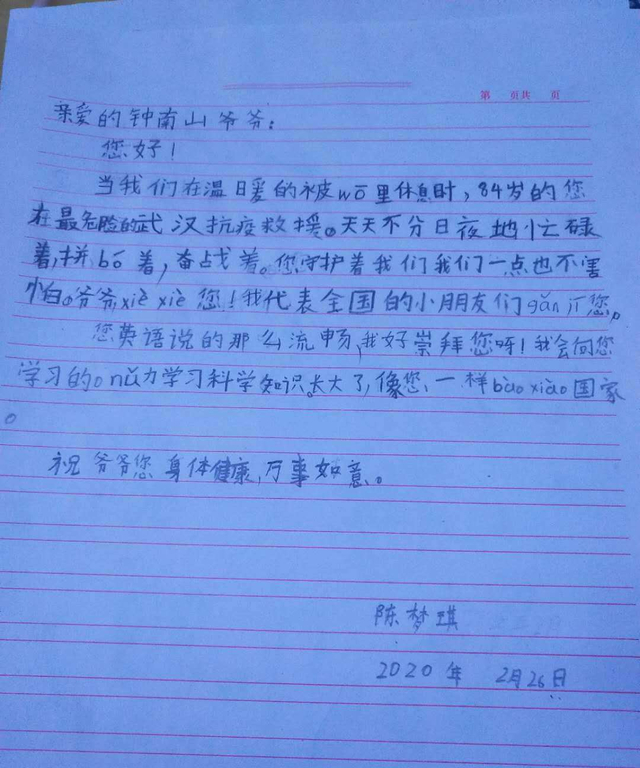 第 页共 页
亲爱的钟南山爷爷：
您好！
当我们在温日爱的被wō里休息时，84岁的您
在最危脸的武汉抗疫救援。天天不分日夜地忙碌
着，拼bō着，奋战着。您守护着我们我们一点也不害
怕。爷爷xiè xiè您！我代表全国的小朋友们gǎn 您，
您英语说的那么流畅，我好崇拜您呀！我会向您
学习的。nǔ力学习科学知识。长大了，像您一样bào xiào国家
。
祝爷爷您身体健康，万事如意。
陈梦琪
2020年 2月26日